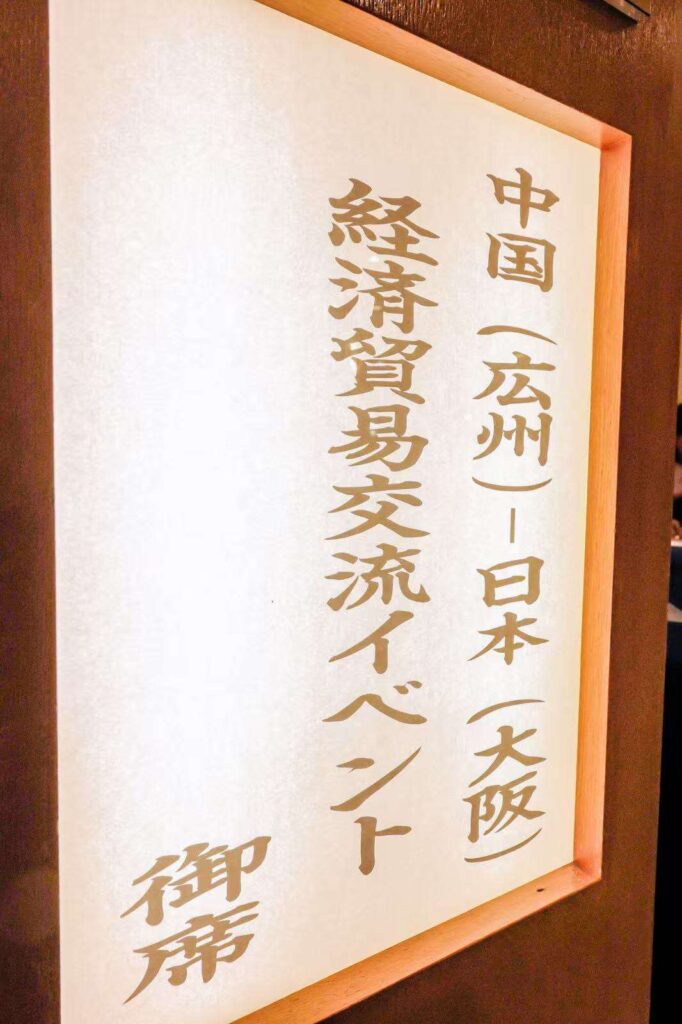 中国（広州）－日本（大阪）
経済貿易交流イベント
御席